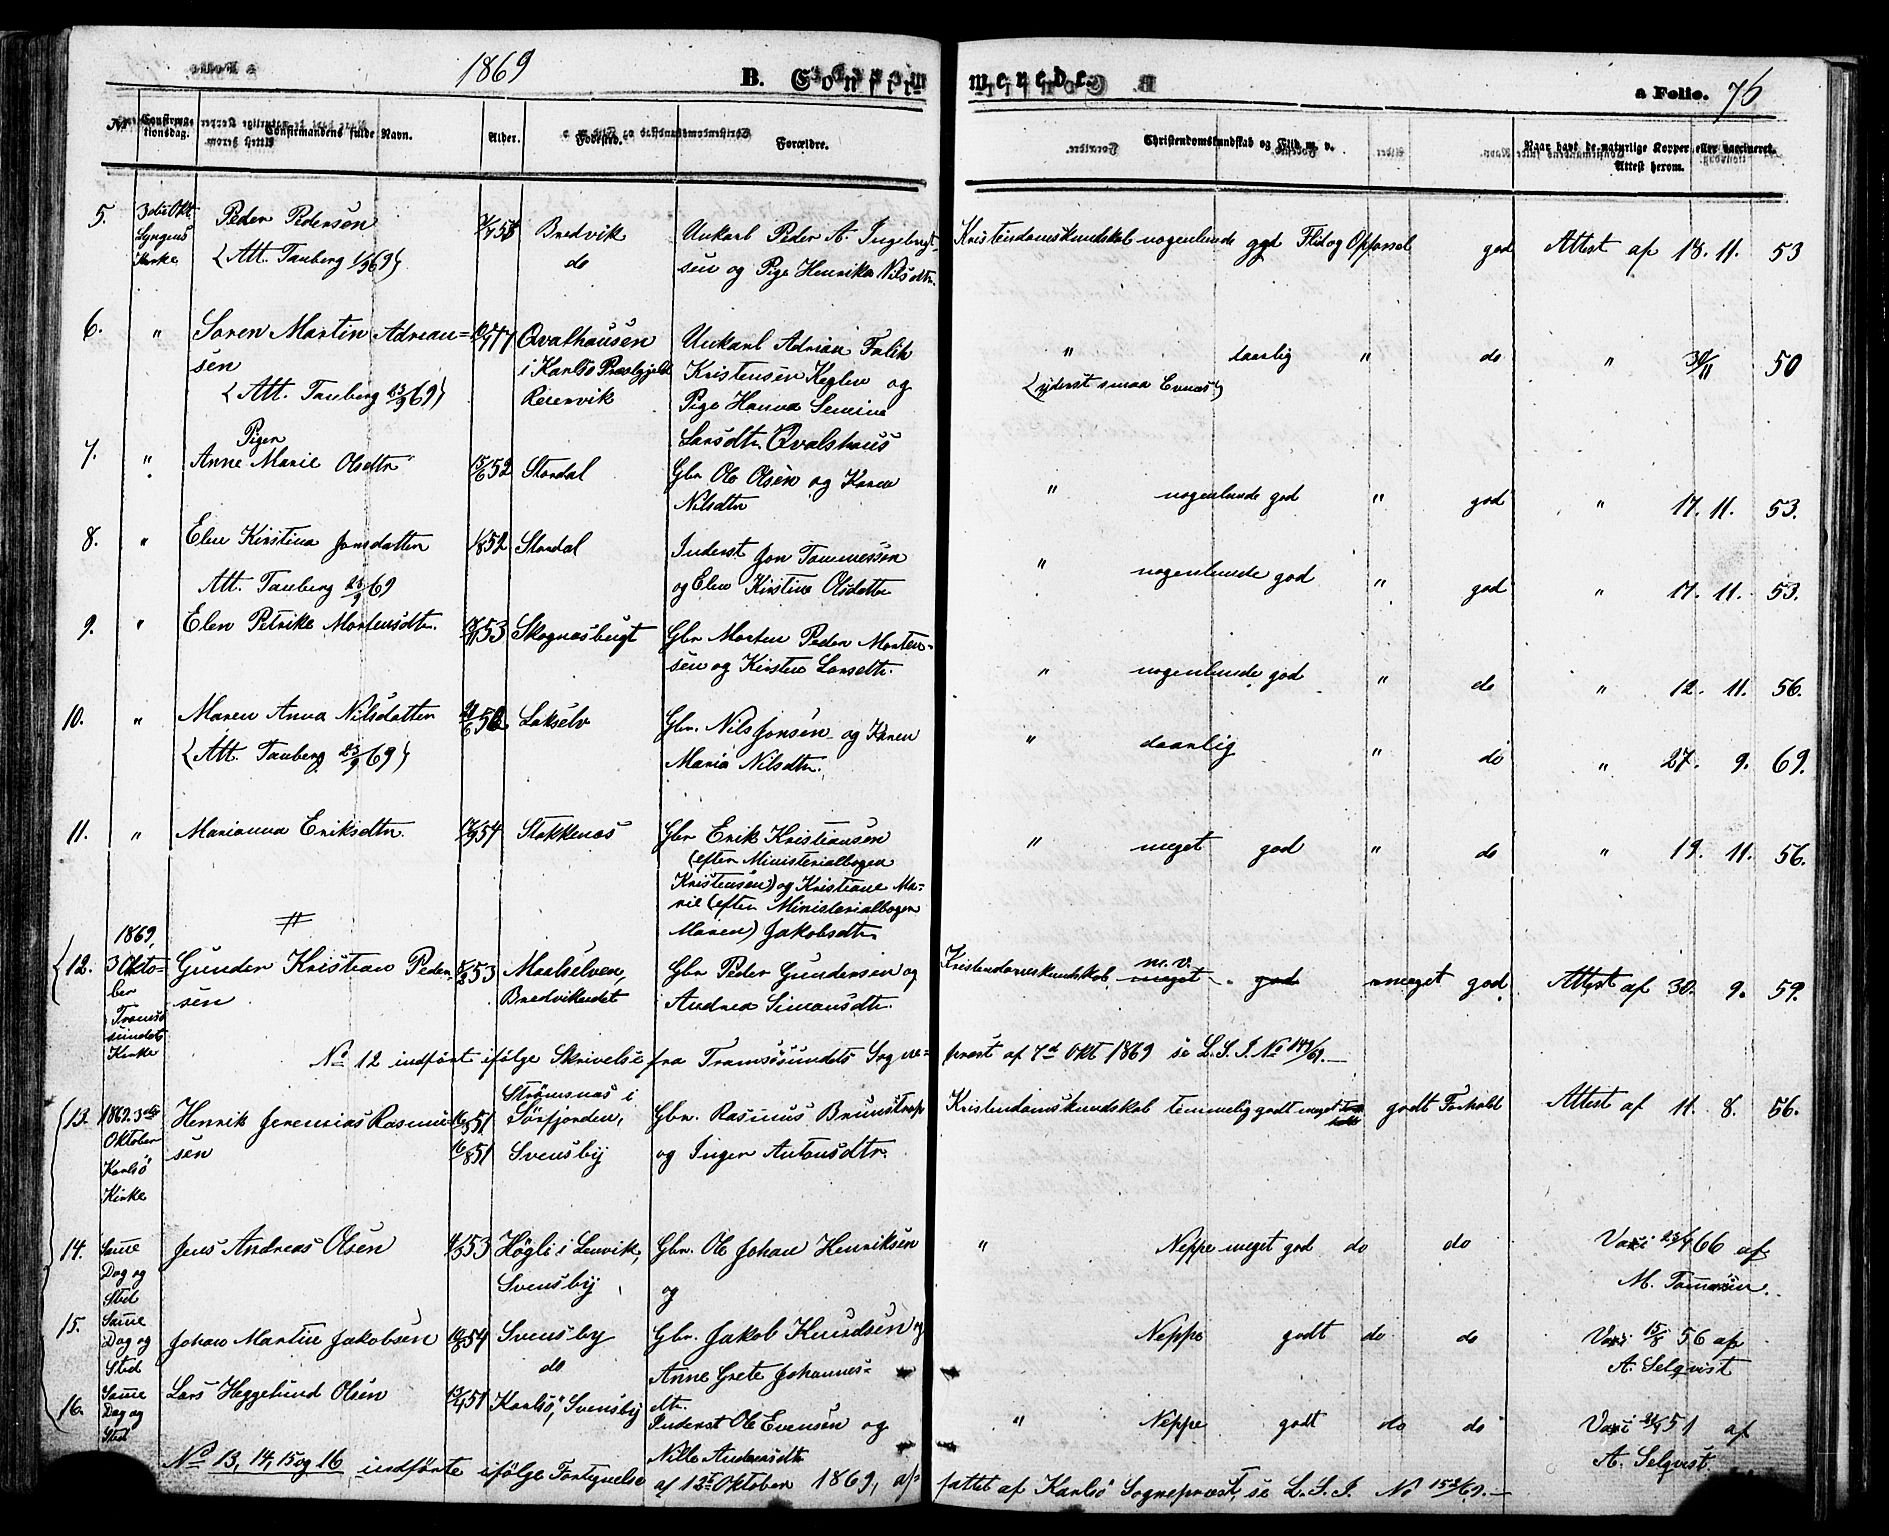 1869
B. Confirmerede.
a Folio. 76
No
Confirmationsdag.
Confirmandens fulde Navn.
Alder.
Fødested.
Forældre.
Christendomskundskab og Flid m. v.
Naar havt de naturlige Kopper eller vaccineret.
Attest herom.
5. 3die Okt. Lyngens Kirke
Peder Pedersen
(Att. Tauberg 1/9 69)
Bredvik
do
Unkarl Peder A. Ingebrigt-
sen og Pige Henrika Nilsdtr.
Kristendomskundskab nogenlunde god Flid og Opførsel god Attest af 18. 11. 53
6. "
Søren Martin Adrian=
sen
(Att. Tauberg 23/9 69)
Qvalhausen
i Karlsø Præstgjeld
Reiervik
Unkarl Adrian Falik
Kristensen Kegler og
Pige Hanna Semine
Larsdtr. Qvalshaus
" taarlig " do " 30/11 50
(yderst smaa Evner)
Piger
7. " Anne Marie Olsdtr 15/6 52 Stordal
Gbr Ole Olsen og Karen
Nilsdtr
" nogenlunde god " god " 17. 11. 53.
8. " Elen Kirstina Jonsdatter 1/8 52 Stordal
Att. Tauberg 23/9 69
Inderst Jon Tommessen
og Elen Kirstine Olsdatter
" nogenlunde god " god " 17. 11. 53.
9. " Elen Petrike Mortensdtr. 53 Skognæsbugt
Gbr Morten Peder Morten-
sen og Kirsten Larsdtr.
" nogenlunde god " do " 12. 11. 56.
10. " Maren Anna Nilsdatter Lakselv
(Att. Tauberg 23/9 69)
Gbr. Nils Jonsen og Karen
Maria Nilsdtr.
" daarlig " do " 27. 9. 69.
11. " Marianna Eriksdtr. 54 Stakkenæs
Gbr Erik Kristiansen
(efter Ministerialbogen
Kristensen) og Kristiane Ma-
rie (efter Ministerialbogen
Maren) Jakobsdtr.
" meget god " do " 19. 11. 56.
12. 1869, 3 Oktober Tromsøsundets Kirke
Gunder Kristian Peder-
sen
53
Maalselven,
Bredvikeidet
Gbr Peder Gundersen og
Andrea Simonsdtr.
Kristendomskundskab m. v. meget god meget god Attest af 30. 9. 59.
No 12 indført ifølge Skrivelse fra Tromsøsundets Sogne-
præst af 7de Okt 1869 se L. S. I. No 149/69.
13. 1869. 3die Oktober Karlsö Kirke
Henrik Jeremias Rasmu-
sen
51
16/8 51
Strømsnæs i
Sörfjorden,
Svensby
Gbr. Rasmus Brunstrøp
og Inger Antonsdtr.
Kristendomskundskab temmelig godt meget godt Forhold Attest af 11. 8. 56.
14. Samme Dag og Sted
Jens Andreas Olsen 53
Høgli i Lenvik,
Svensby
Gbr. Ole Johan Henriksen
og
" Neppe meget god do do Vaxi 23/4 66 af
M. Tomassen.
15. Samme Dag og Sted
Johan Martin Jakobsen 54
Svensby
do
Gbr. Jakob Knudsen og
Anne Grete Johannes-
dtr.
Neppe godt do do Vaxi 15/8 56 af
A. Selqvist
16. Samme Dag og Sted
Lars Heggelund Olsen 51 Karlsö, Svensby
Inderst Ole Evensen og
Nille Andersdtr
" Neppe godt do do Vaxi 51 af
A. Selqvist.
No 13, 14, 15 og 16 indførte ifølge Fortegnelse af 12te Oktober 1869, af-
fattet af Karlsö Sognepræst, se L. S. I. No 152/69.